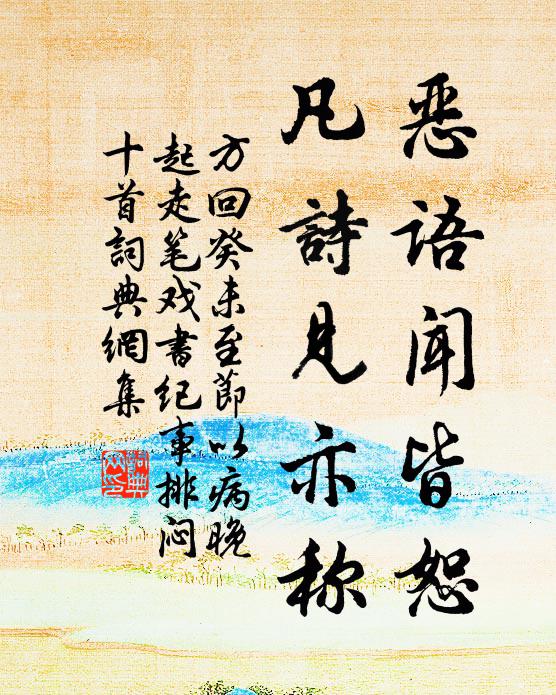 恶语闻皆恕
凡詩見亦称
方回癸未至節以病晚
起走笔戏書纪事排闷
十首詞典網集